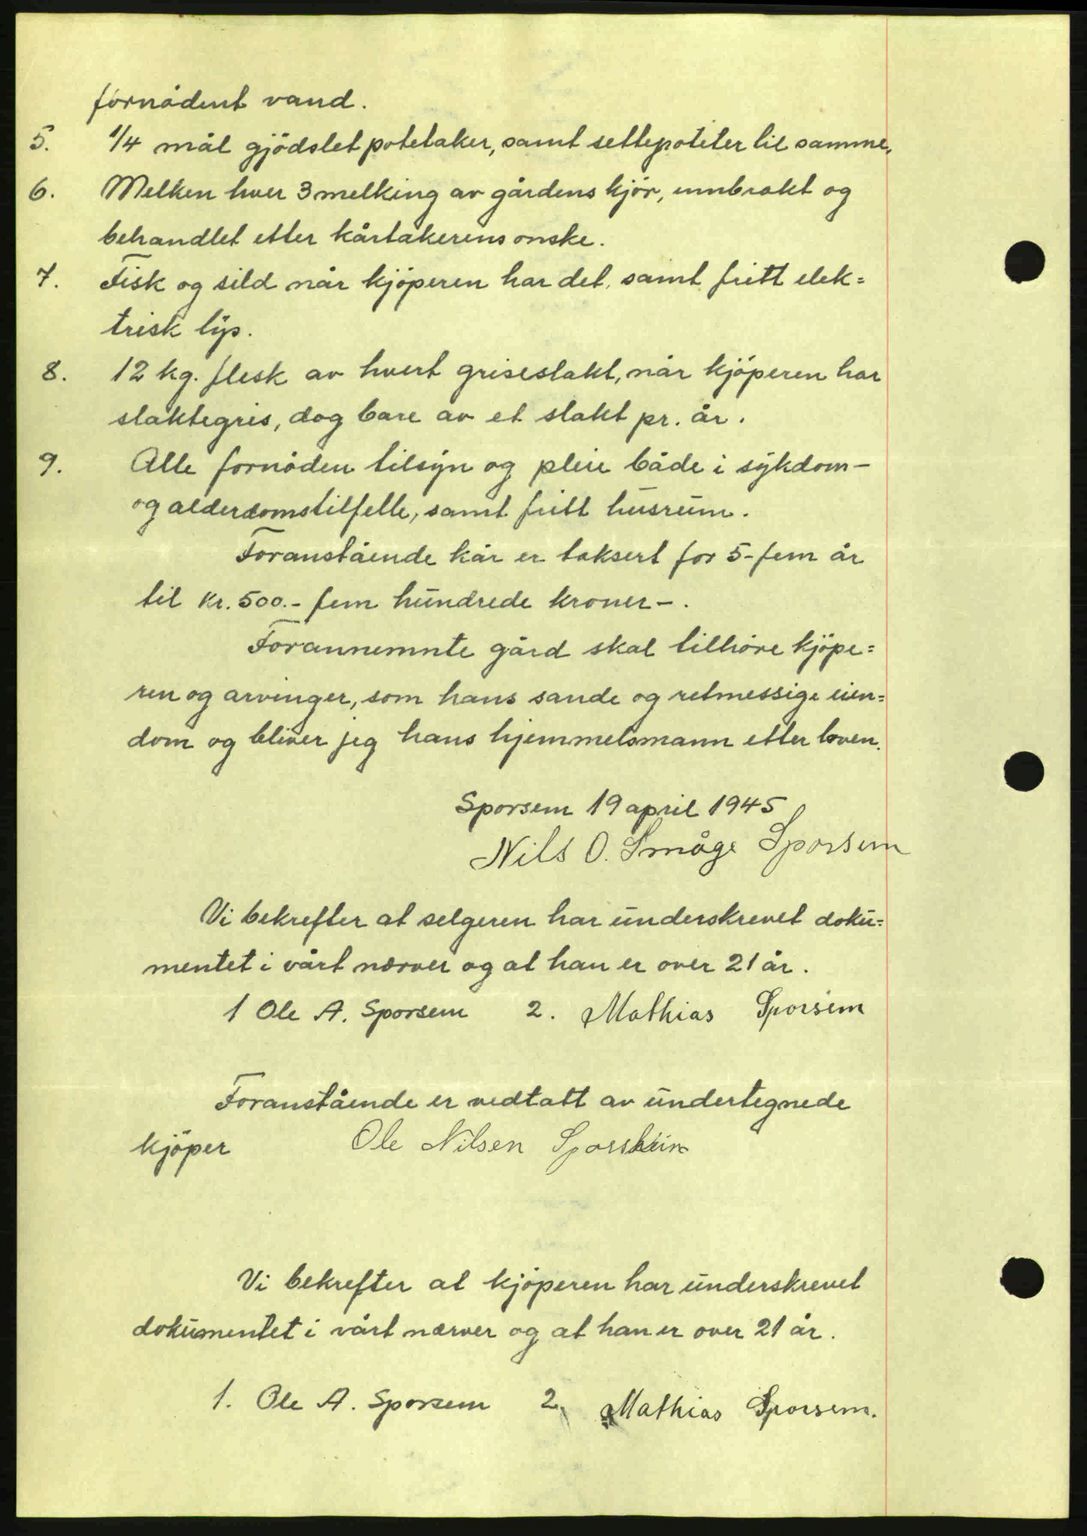 fornödent vand.
5. 1/4 mål gjödslet potetaker, samt settepoteter til samme,
6. Melken hver 3 melking av gårdens kjör, innbrakt og
behandlet etter kårtakerens önske.
7. Fisk og sild når kjöperen har det, samt fritt elek=
trisk lys.
8. 12 kg. flesk av hvert griseslakt, når kjöperen har
slaktegris, dog bare av et slakt pr. år.
9. Alle fornöden tilsyn og pleie både i sykdom-
og alderdomstilfelle, samt fritt husrum.
Foranstående kår er taksert for 5-fem år
til kr. 500.- fem hundrede kroner-.
Forannemnte gård skal tilhöre kjöpe=
ren og arvinger, som hans sande og retmessige eien=
dom og bliver jeg hans hjemmelsmann etter loven.
Sporsem 19 april 1945
Nils O. Småge Sporsem
Vi bekrefter at selgeren har underskrevet doku=
mentet i vårt nærver og at han er over 21 år.
1 Ole A. Sporsem 2. Mathias Sporsem
Foranstående er vedtatt av undertegnede
kjöper Ole Nilsen Sporsheim
Vi bekrefter at kjöperen har underskrevet
dokumentet i vårt nærver og at han er over 21 år.
1. Ole A. Sporsem 2. Mathias Sporsem.